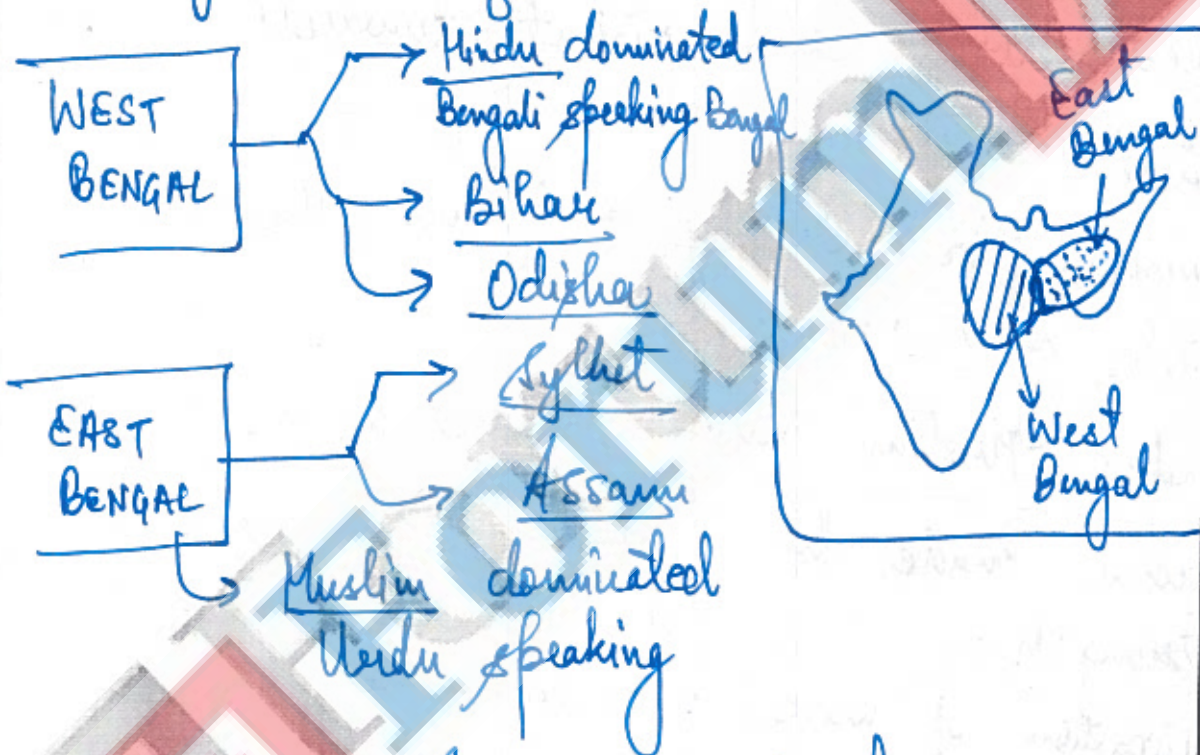 WEST
BENGAL
Hindu dominated
Bengali speaking Bengal
Bihar
Odisha
EAST
BENGAL
Sylhet
Assam
Muslim dominated
Urdu speaking
East
Bengal
West
Bengal
Forum